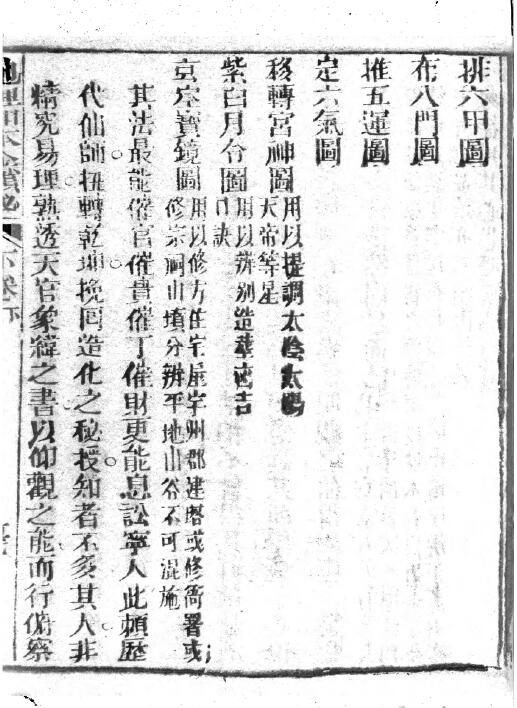 排六甲圖
布八門圖
推五運圖
定六氣圖
移轉宮神圖
用以提調太陰太陽
天帝等星
紫白月台圖
用以辨別造葬吉
口訣
寶鏡圖
用以修方住宅屋宇州郡建塔或修衙署或
修宗祠山墳分辨平地山谷不可混施
其法最能催官催貴催丁催財更能息訟寧人此賴歷
代仙師扭轉乾坤挽回造化之秘授知者不多其人非
精究易理熟透天官象緯之書以仰觀之能而行俯察
下卷